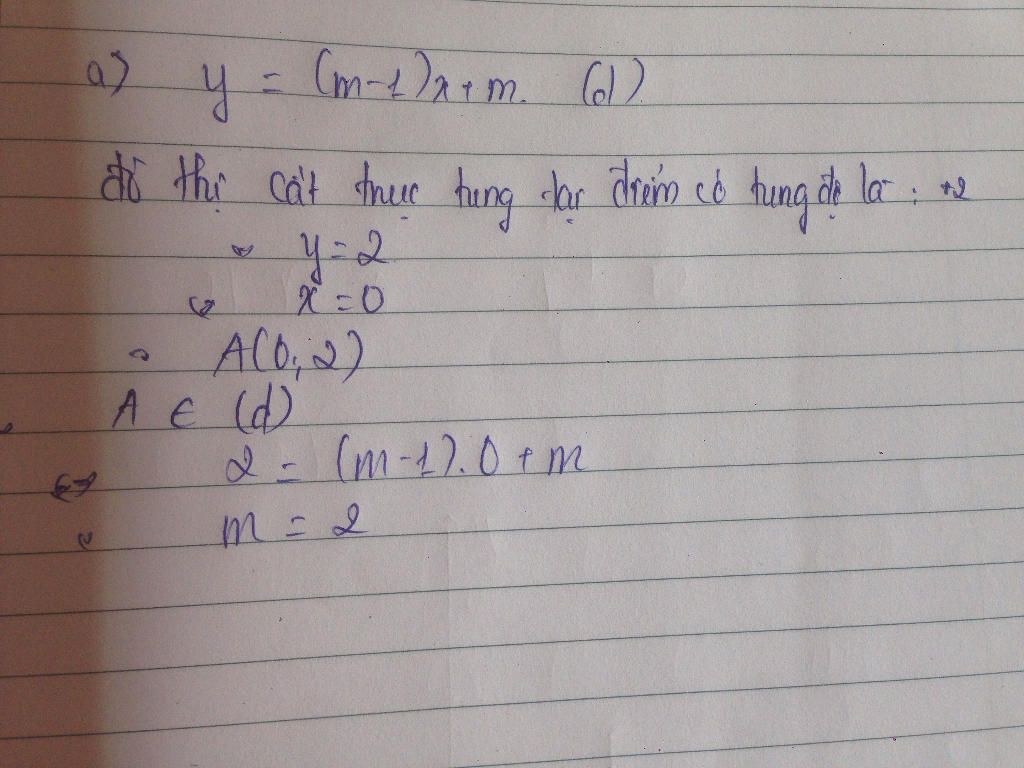 a) y = (m-1)x + m. (d)
đồ thị cắt trục tung tại điểm có tung độ là : +2
y = 2
x = 0
A(0; 2)
A ∈ (d)
⇔ 2 = (m-1).0 + m
m = 2